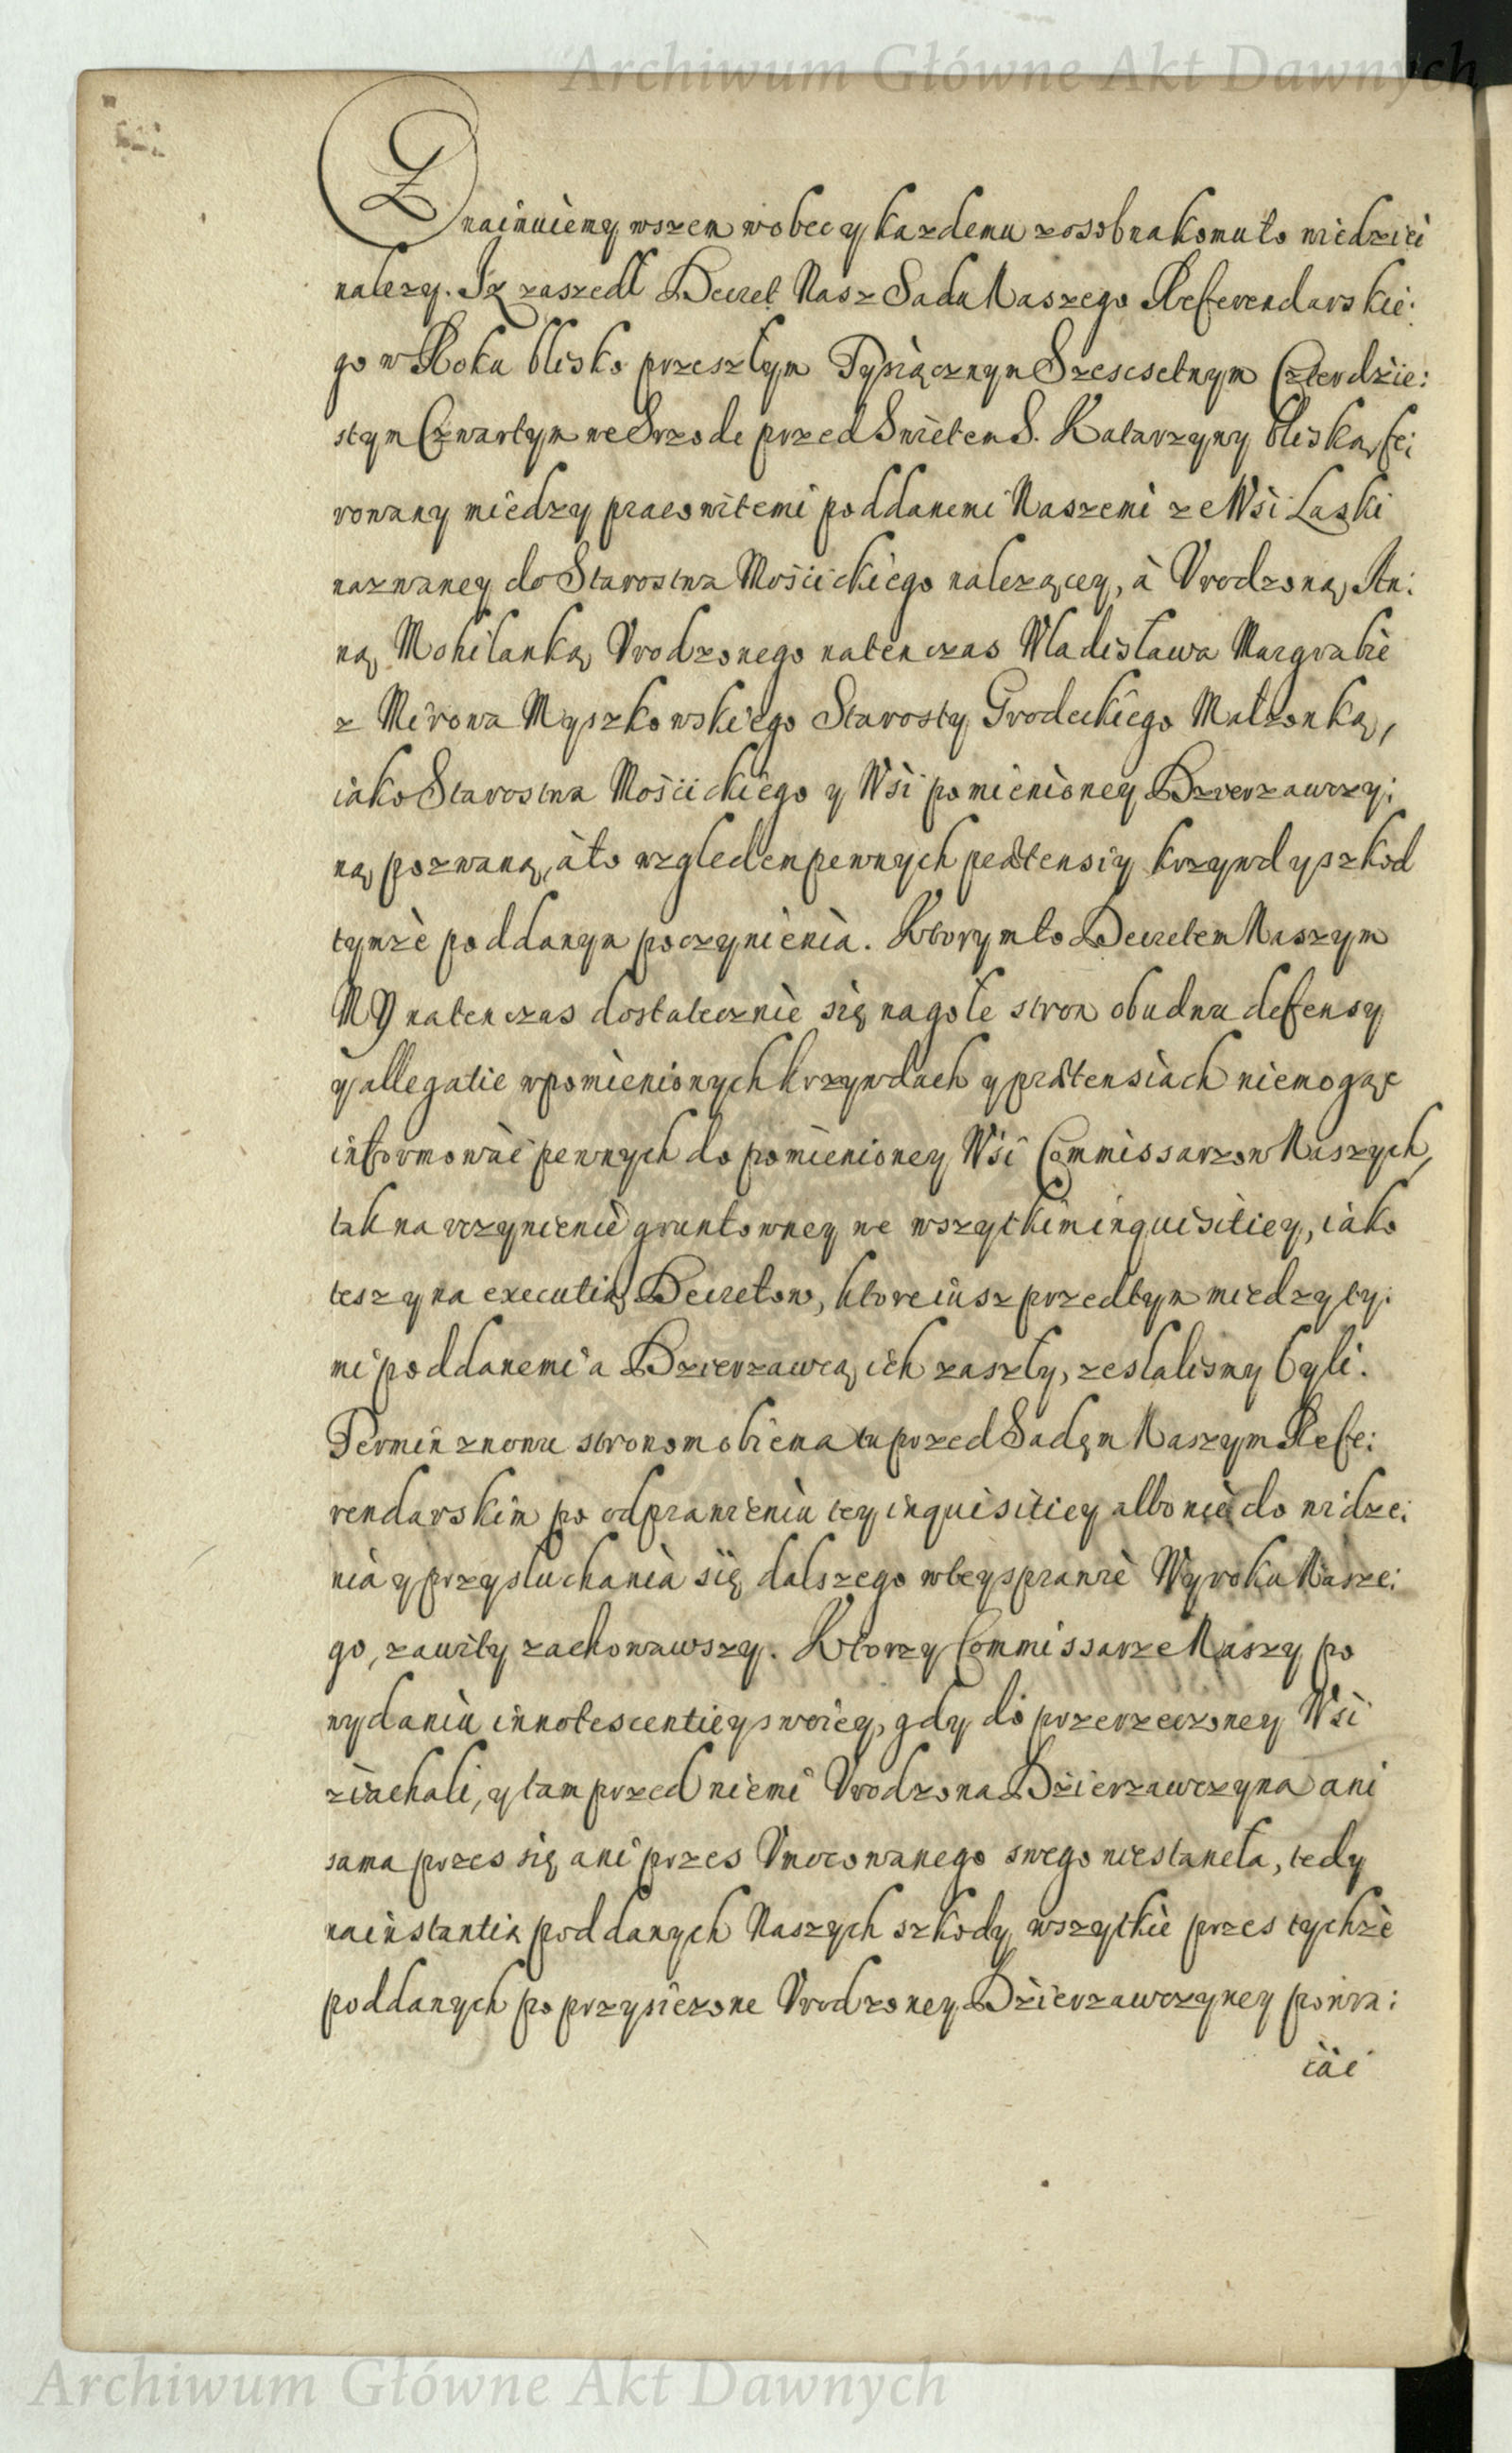 Archiwum Główne Akt Dawnych
Znaimuiemy wszem wobec y kazdemu zosobna komu to wiedziec
nalezy. Iz zaszedł Decret Nasz Sadu Naszego Referendarskie:
go w Roku blisko przeszłym Tysiącznym Szescsetnym Czterdzie:
stym Czwartym we Srzode przed Swietem S. Katarzyny bliską fe:
rowany miedzy pracowitemi poddanemi Naszemi ze Wsi Laski
nazwaney do Starostwa Mościckiego nalezącey, à Vrodzoną An:
ną Mohilanką Vrodzonego natenczas Wladisława Margrabie
z Mirowa Myszkowskiego Starosty Grodeckiego Małzonką,
iako Starostwa Mościckiego y Wsi pomienioney Dzierzawczy:
ną pozwaną, à to względem pewnych prætensiy krzywd y szkod
tymże poddanym poczynienia. Ktorym to Decretem Naszym
MY natenczas dostatecznie się nagołe stron obudwu defensy
y allegatie wpomienionych krzywdach y prætensiach niemogąc
informować pewnych do pomienioney Wsi Commissarzow Naszych,
tak na vczynienie gruntowney we wszytkim inquisitiey, iako
tesz y na executią Decretow, ktore iusz przedtym miedzy ty:
mi poddanemi a Dzierzawcą ich zaszły, zesłalismy byli.
Termin znowu stronom obiema tu przed Sadem Naszym Refe:
rendarskim po odprawieniu tey inquisitiey albo nie do widze:
nia y przysluchania się dalszego wtey sprawie Wyroku Nasze:
go, zawity zachowawszy. Ktorzy Commissarze Naszy po
wydaniu innotescentiey swoiey, gdy do przerzeczoney Wsi
ziachali, y tam przed niemi Vrodzona Dzierzawczyna ani
sama przes się ani przes Vmocowanego swego niestaneła, tedy
nainstantią poddanych Naszych szkody wszytkie przes tychże
poddanych poprzysiezone Vrodzoney Dzierzawczyney powra:
cac
Archiwum Główne Akt Dawnych